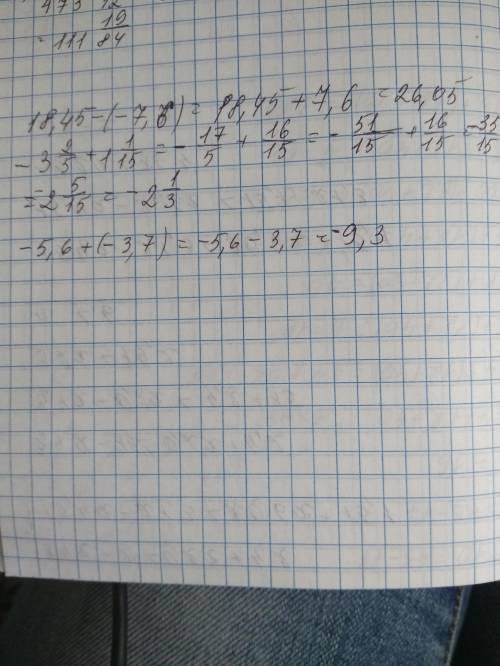 473 12
19
= 111 84
18,45-(-7,6) = 18,45+7,6 = 26,05
-3 2/5 + 1 1/15 = - 17/5 + 16/15 = - 51/15 + 16/15 = -35/15
= -2 5/15 = -2 1/3
-5,6+(-3,7) = -5,6-3,7 = -9,3